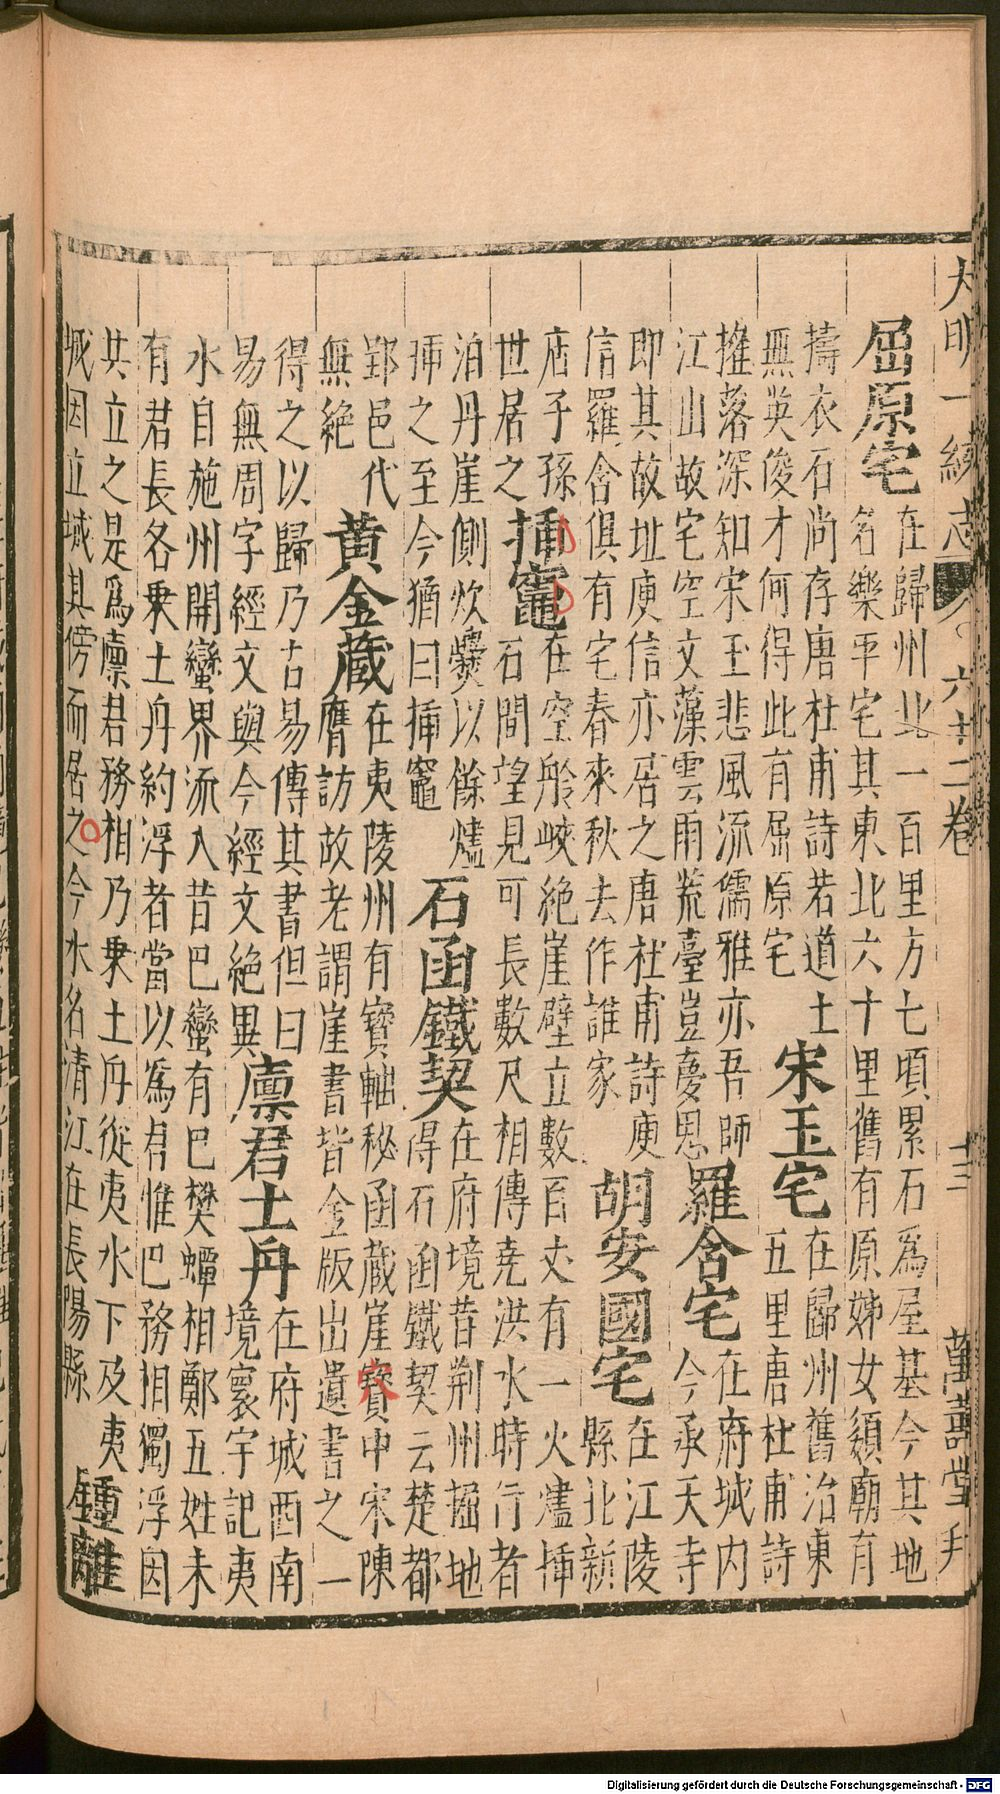 大明一統志 六十二卷 十三 萬壽堂刊
屈原宅
在歸州北一百里方七頃累石為屋基今其地
名樂平宅其東北六十里舊有原姊女嬃廟有
擣衣石尚存唐杜甫詩若道土
無英俊才何得此有屈原宅
宋玉宅
在歸州舊治東
五里唐杜甫詩
搖落深知宋玉悲風流儒雅亦吾師
江山故宅空文藻雲雨荒臺豈夢思
羅含宅
在府城内
今承天寺
即其故址庾信亦居之唐杜甫詩庾
信羅含俱有宅春來秋去作誰家
胡安國宅
在江陵
縣北新
店子孫
世居之
插竈
在空舲峽絕崖壁立數百丈有一火爐插
石間望見可長數尺相傳堯洪水時行者
泊丹崖側炊爨以餘爐
插之至今猶曰插竈
石函鐵契
在府境昔荆州掘地
得石函鐵契云楚都
郢邑代
無絕
黄金藏
在夷陵州有寶軸秘函藏崖寶中宋陳
膺訪故老謂崖書皆金版出遺書之一
得之以歸乃古易傳其書但曰
易無周字經文與今經文絕異
廪君土舟
在府城西南
境寰宇記夷
水自施州開蠻界流入昔巴蠻有巴樊蟫相鄭五姓未
有君長各乗土舟約浮者當以爲君惟巴務相獨浮因
共立之是爲廪君務相乃乗土舟從夷水下及夷
城因立城其傍而居之今水名清江在長陽縣
鍾離
穴
Digitalisierung gefördert durch die Deutsche Forschungsgemeinschaft - DFG